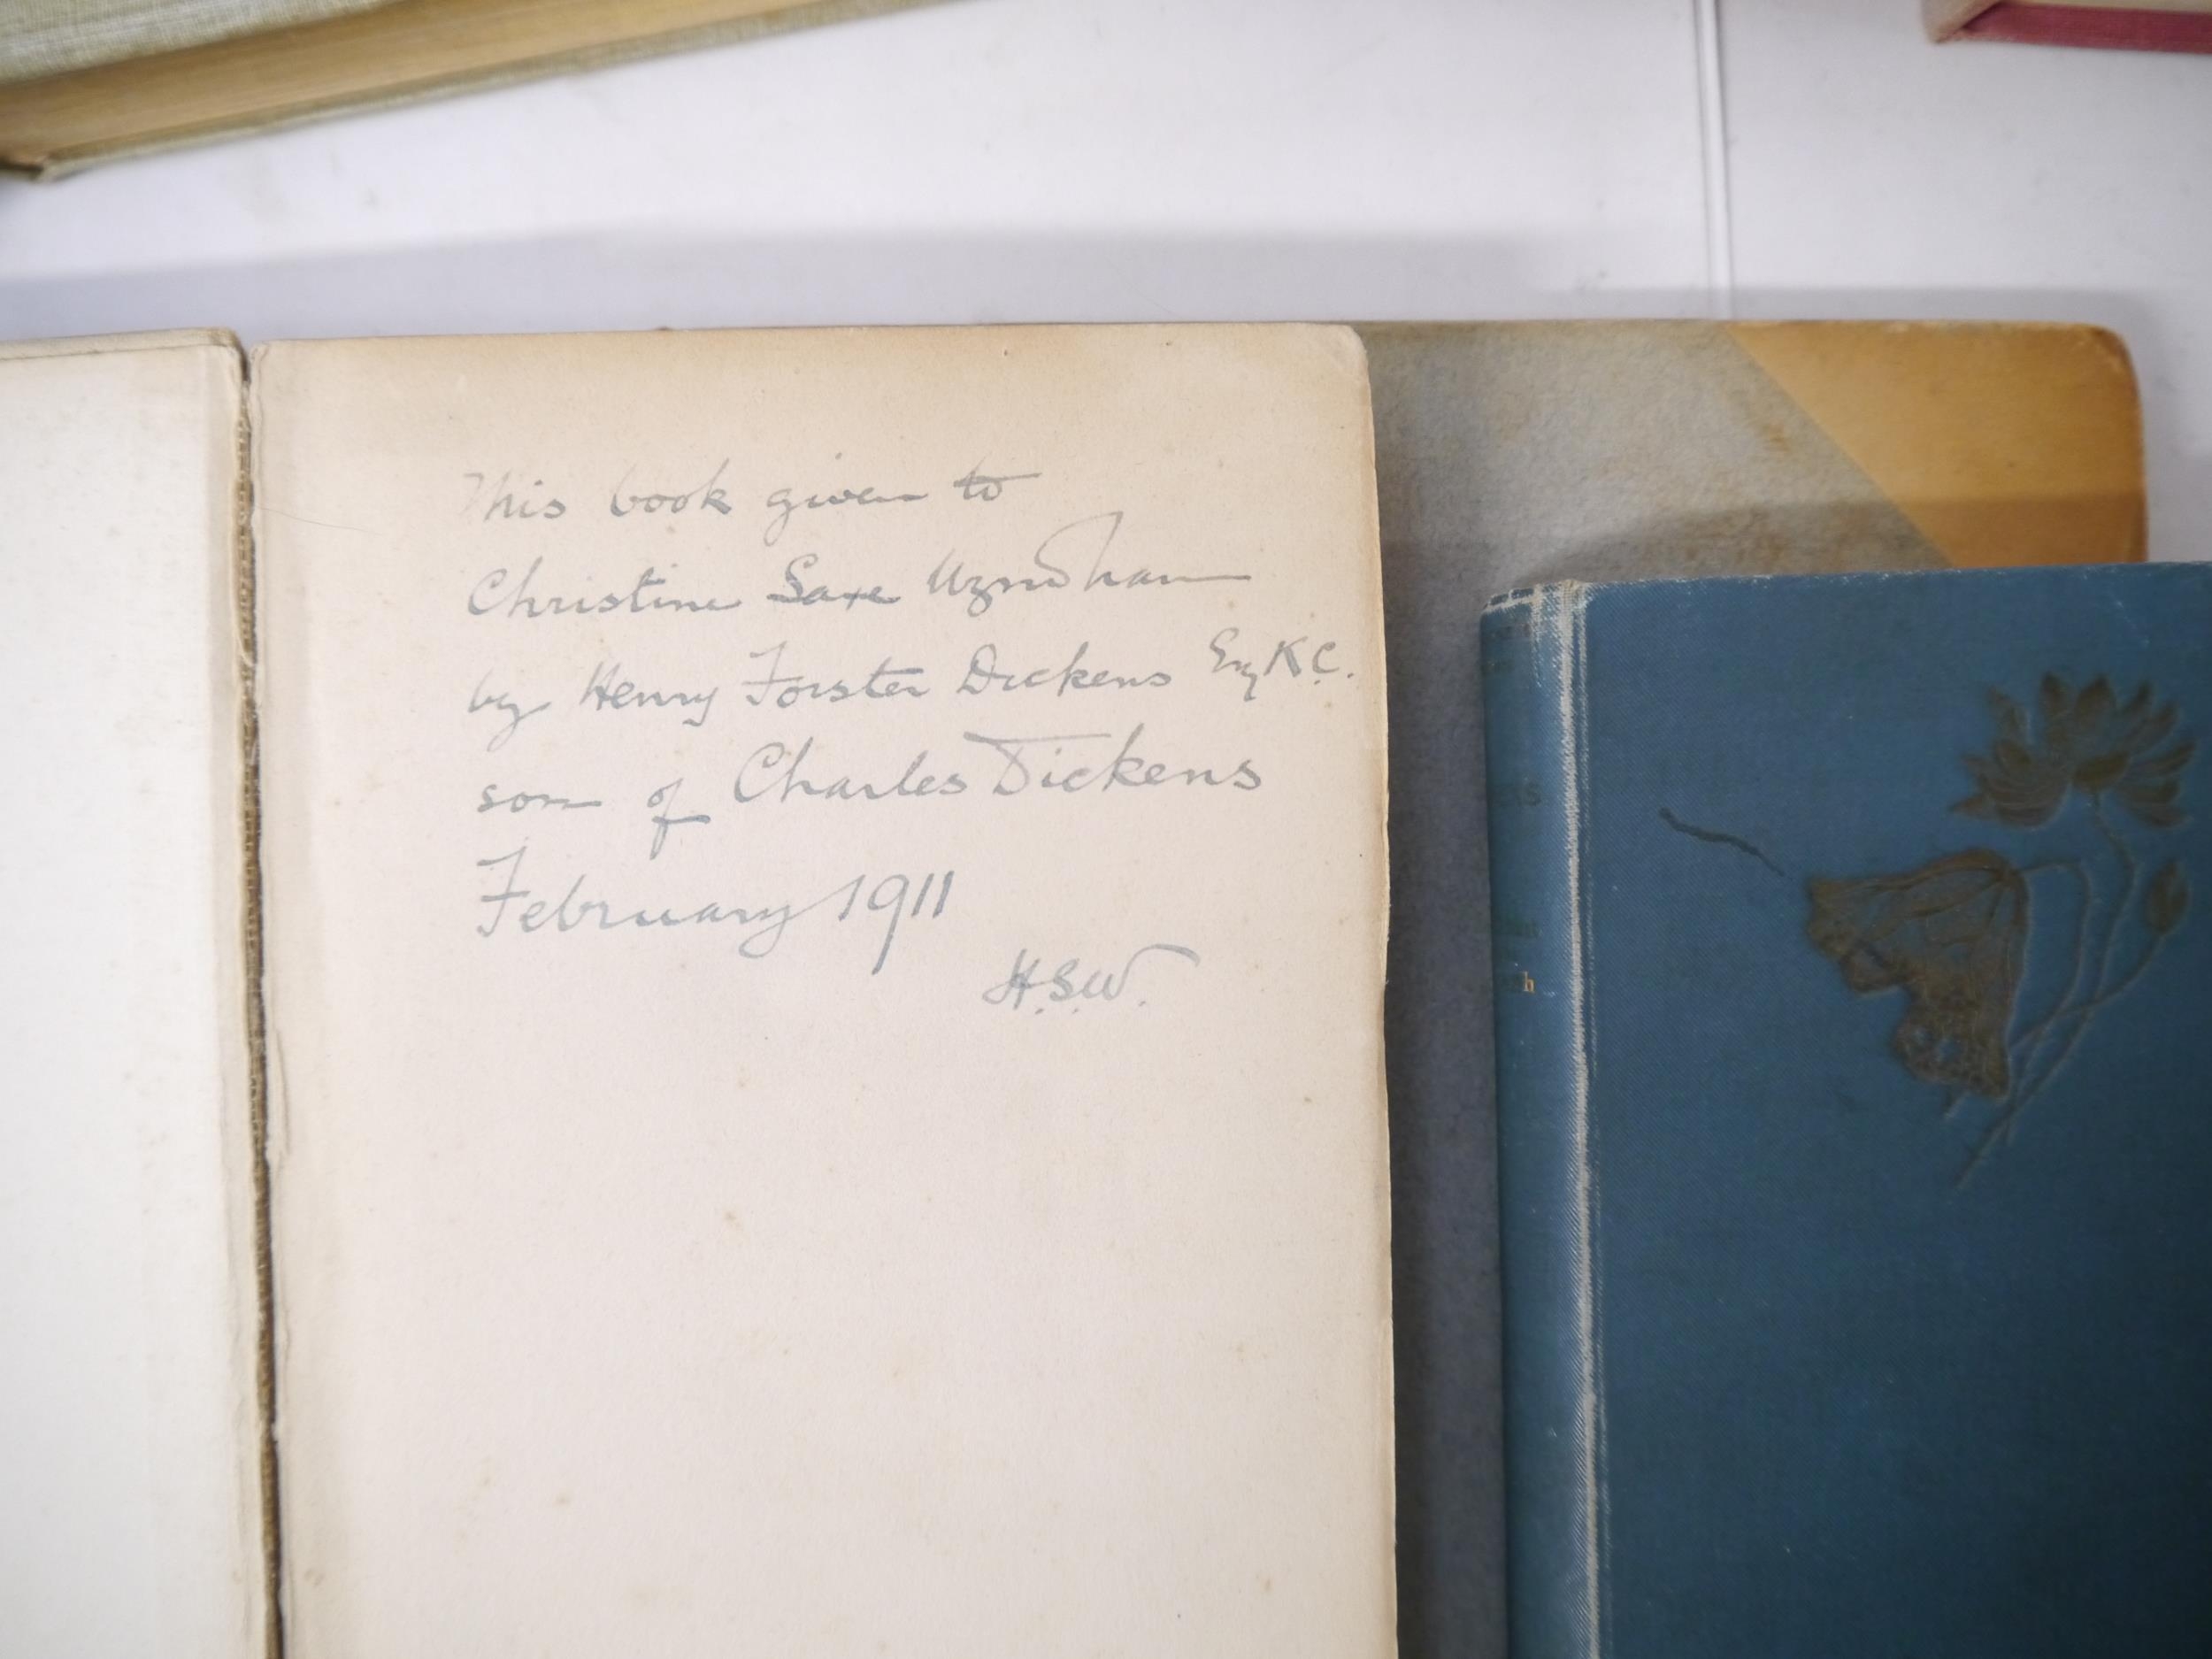 This book given to
Christine Saxe Wyndham
by Henry Forster Dickens Esq K.C.
son of Charles Dickens
February 1911
H.S.W.
h